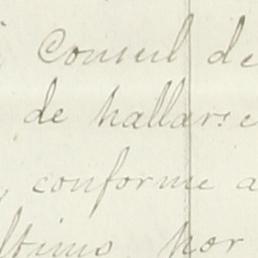 Conseil de
de hallarse
, conforme a
ltimo por